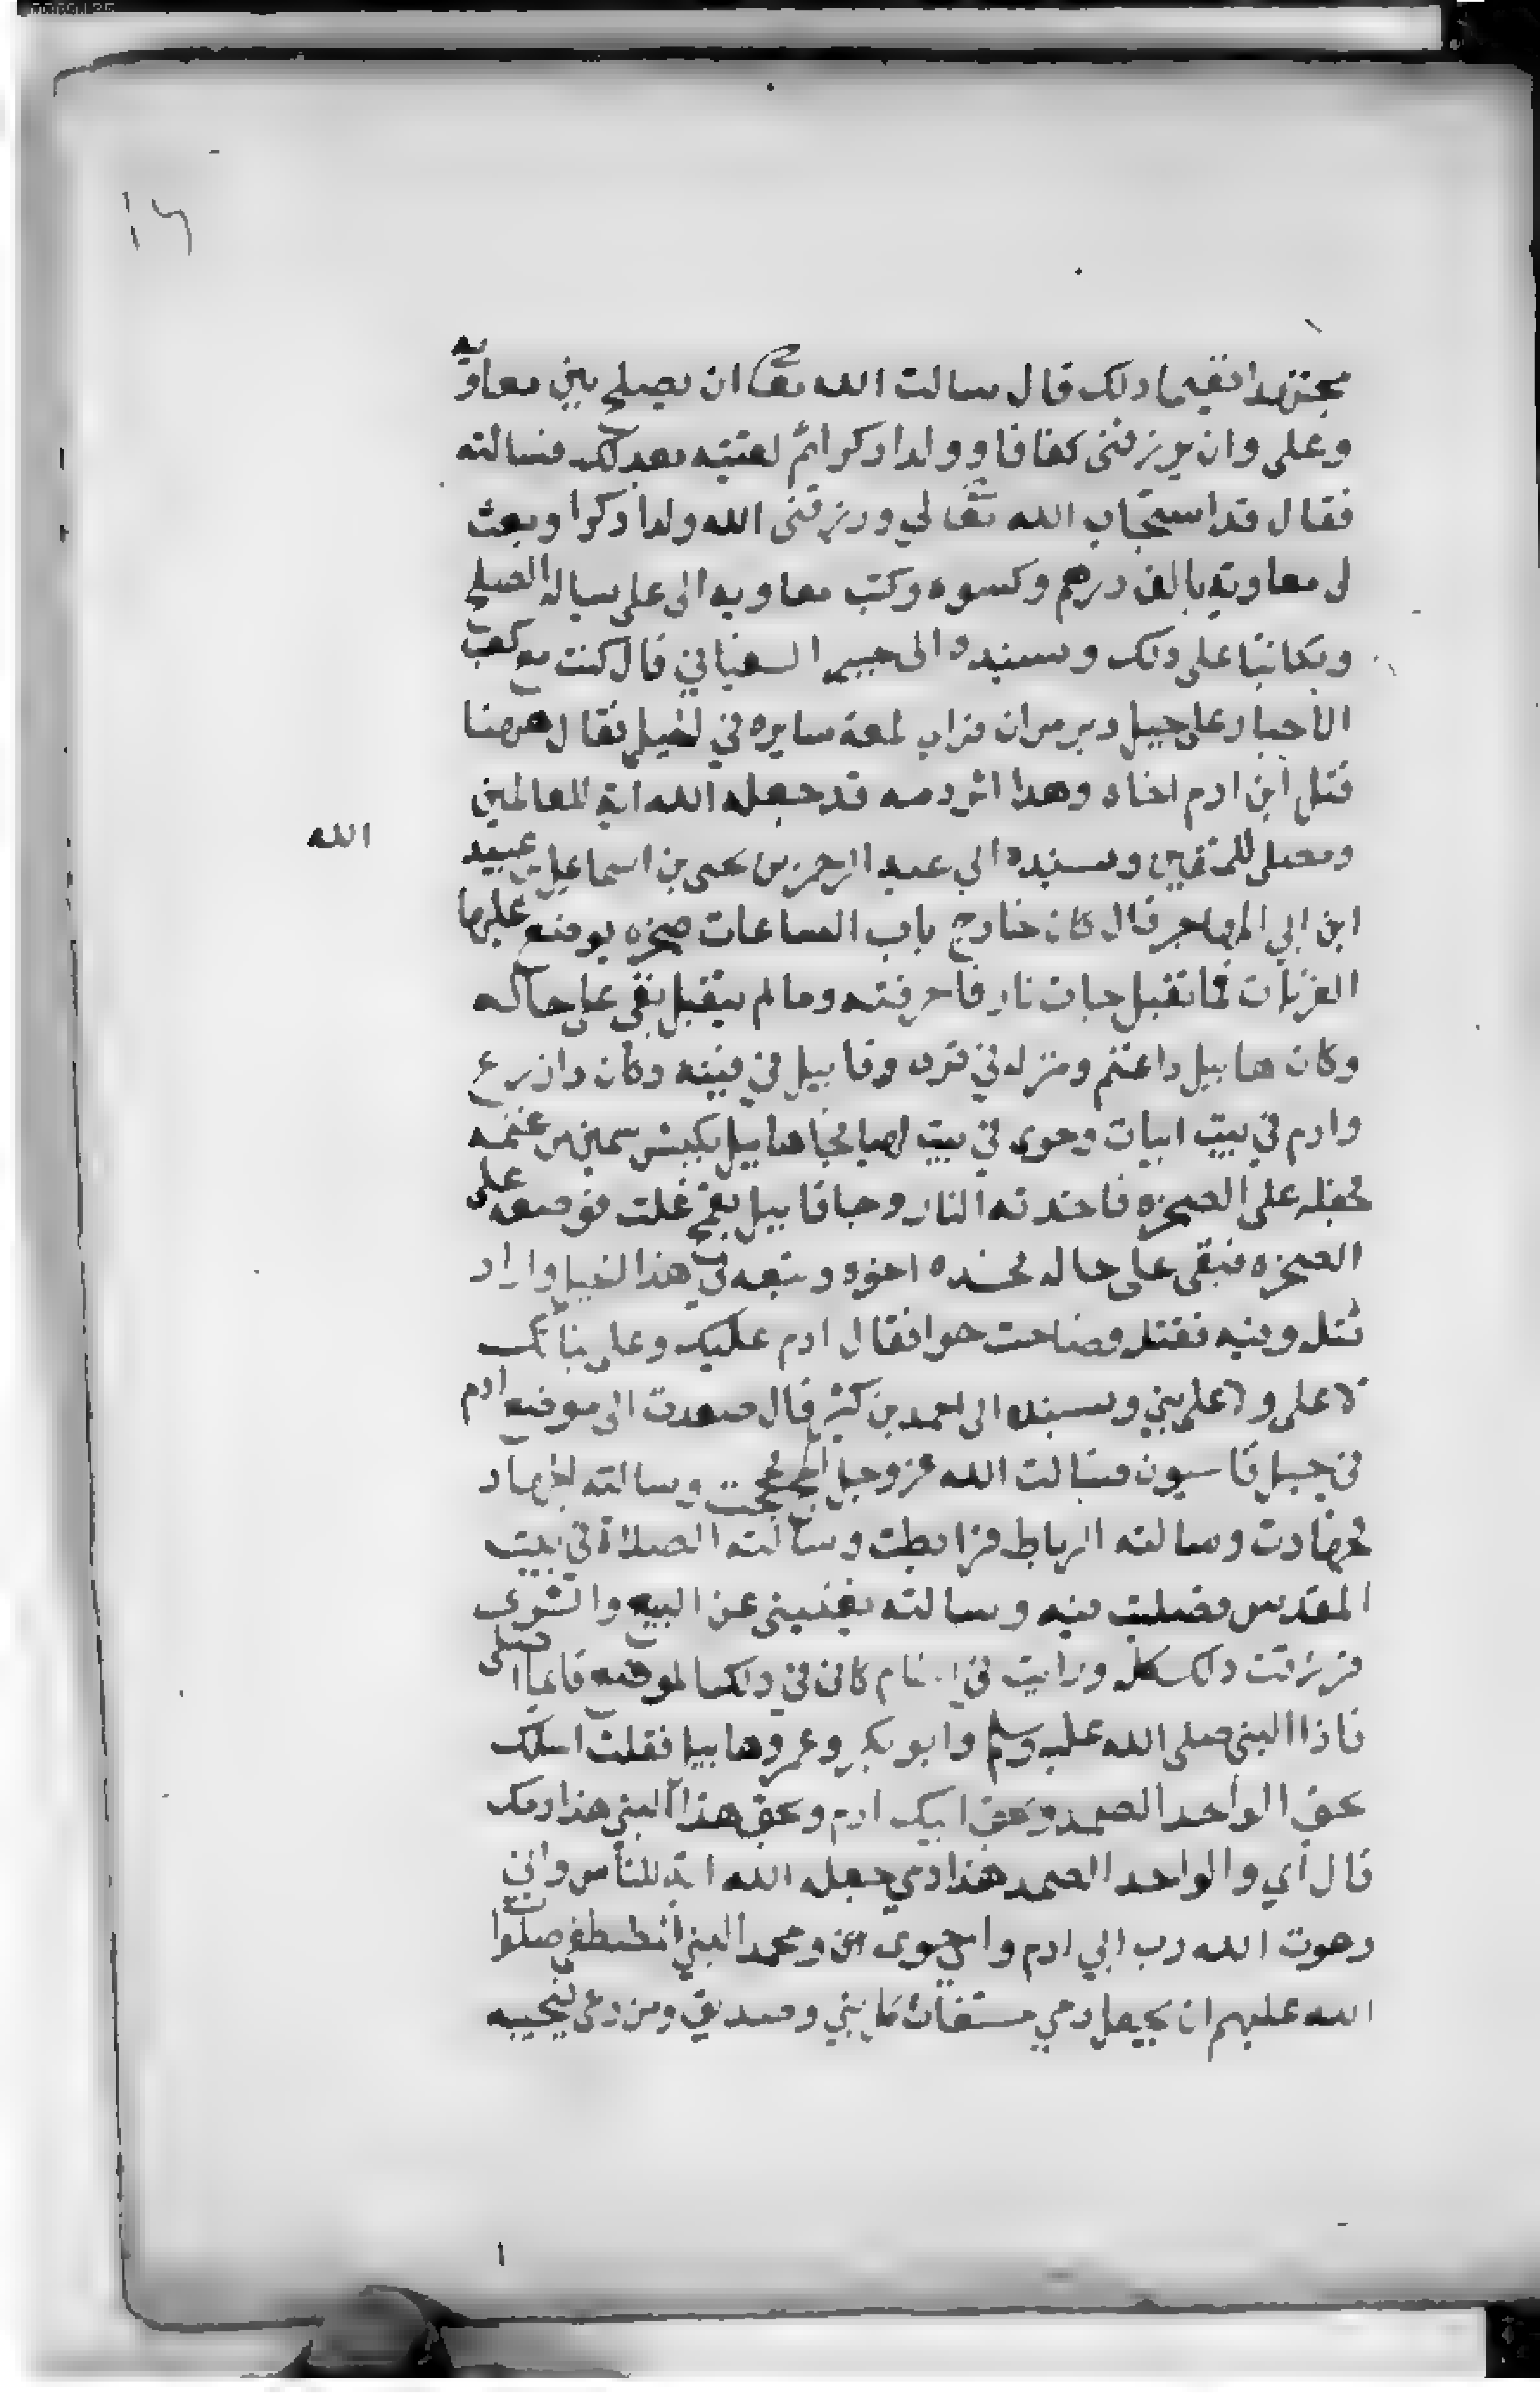 ١٦
مجتهدا فقيما ذلك قال سالت الله تعا ان يصلح بين معاويه
وعلى وان يرزقنى كفافا وولدا ذكرا ثم لقيته بعد ذلك فسالته
فقال قد استجاب الله تعالي ورزقنى الله ولدا ذكرا وبعث
لى معاوية بالف درهم وكسوه وكتب معاويه الى على يساله الصلح
وتكاتبا على ذلك وبسنده الى الشيباني قال كنت مع كعب
الاحبار على جبل دير مران فراى لمعة سايره في الجبل فقال ههنا
قتل ابن ادم اخاه وهذا اثر دمه قد جعله الله اية للعالمين
ومصلى للمتقين وبسنده الي عبد الرحمن بن يحيى بن اسماعيل بن عبيد
الله
ابن ابي المهاجر قال كان خارج باب الساعات صخره يوضع عليها
القربات فما تقبل جات نار فاحرقته وما لم يتقبل بقى على حاله
وكان هابيل ذا غنم ومنزله في قرى وقابيل في قينيه وكان ذا زرع
وادم في بيت ابيات وحوى في بيت لهيا فجا هابيل بكبش سمين من غنمه
فجعله على الصخره فاخذته النار وجا قابيل بقمح غلت فوضعه على
الصخره فبقى على حاله فحسده اخوه وتبعه في هذا الجبل واراد
قتله وفيه فقتله وصاحت حوا فقال ادم عليك وعلى بناتك
لا على ولا على بني وبسنده الى احمد بن كثير قال صعدت الى موضع ادم
فى جبل قاسيون فسالت الله عز وجل الحج فحججت وسالته الجهاد
فجهادت وسالته الرباط فرابطت وسالته الصلاة في بيت
المقدس فصليت فيه وسالته يغنيني عن البيع والشرى
فرزقت ذلك كله ورايت في المنام كاني في ذلك الموضع قايما اصلى
فاذا النبى صلى الله عليه وسلم وابو بكر وعمر وهابيل فقلت اسلك
بحق الواحد الصمد وبحق ابيك ادم وبحق هذا النبي هذا دمك
قال اي والواحد الصمد هذا دمي جعله الله اية للناس واني
دعوت الله رب ابي ادم وامي حوى ومحمد النبي المصطفى صلوات
الله عليهم ان يجعل دمي مستغاث كل نبي وصديق ومن دعى فيجيبه